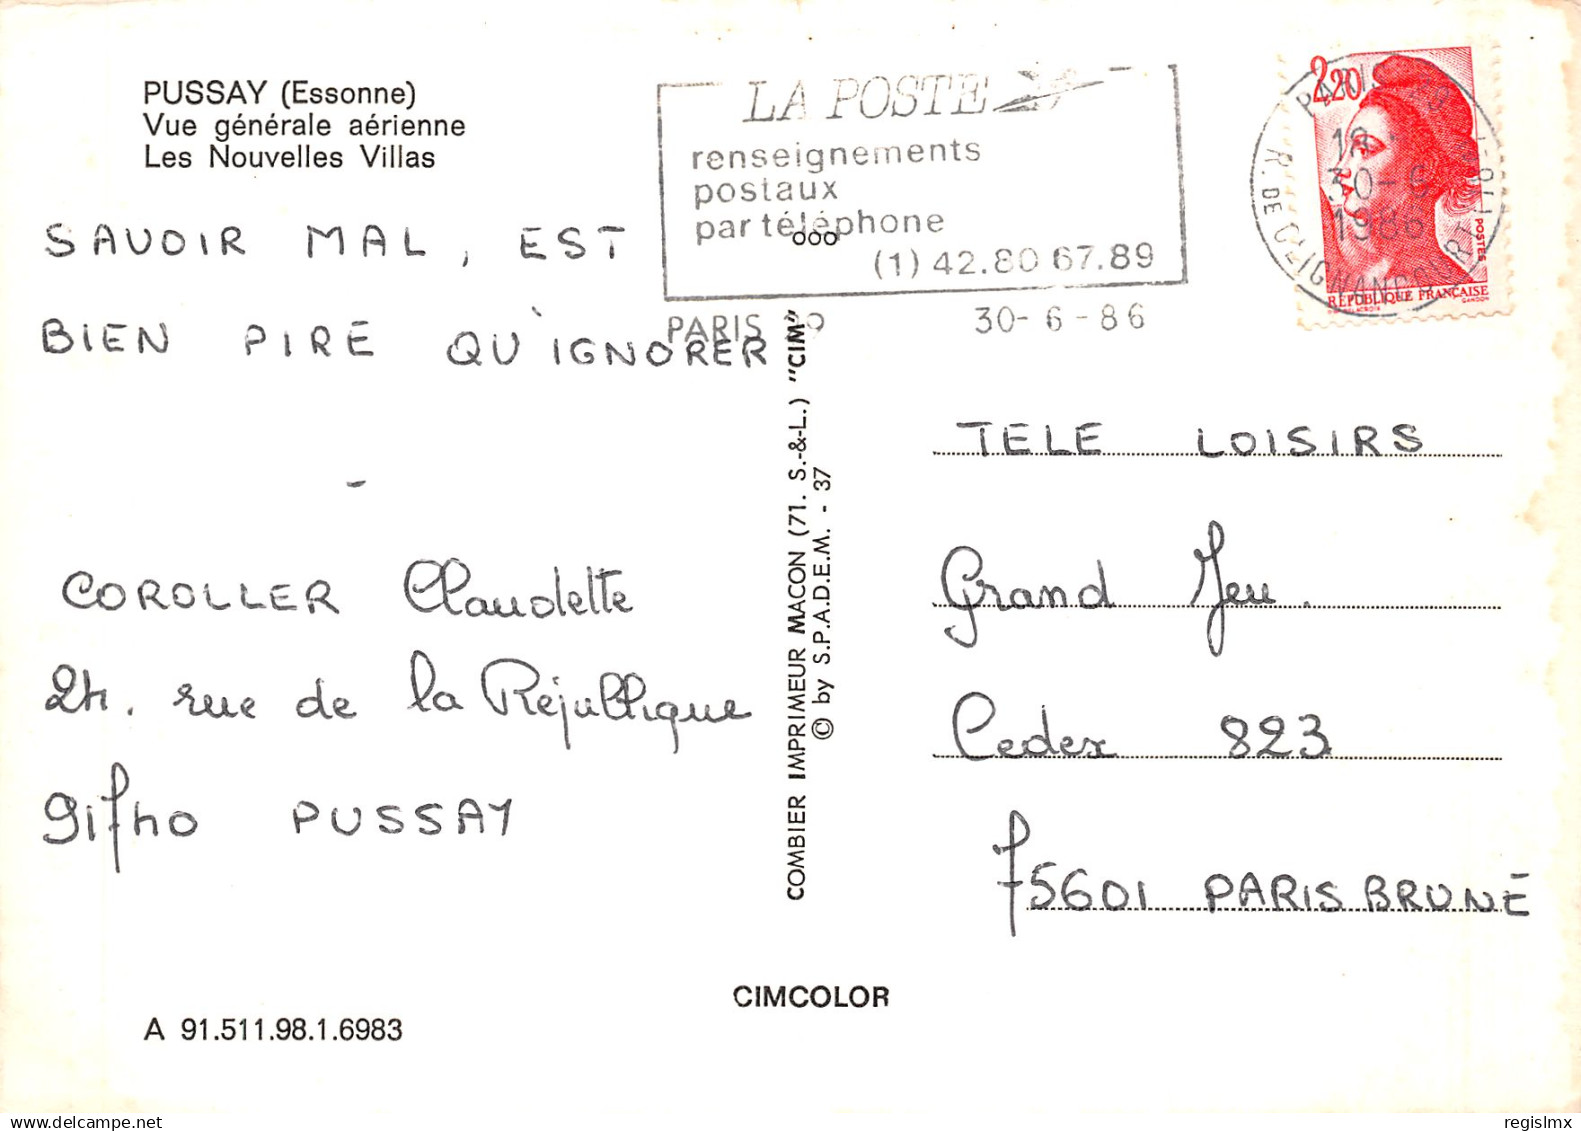 PUSSAY (Essonne)
Vue générale aérienne
Les Nouvelles Villas
SAVOIR MAL, EST
BIEN PIRE QU'IGNORER
-
COROLLER Claudette
24. rue de la République
91740 PUSSAY
A 91.511.98.1.6983
LA POSTE
renseignements
postaux
par téléphone
(1) 42.80 67.89
PARIS
30-6-86
COMBIER IMPRIMEUR MACON (71. S.-&-L.) "CIM"
© by S.P.A.D.E.M. - 37
CIMCOLOR
2,20
POSTES
RÉPUBLIQUE FRANÇAISE
GANDON
PARIS
18
30-6
1986
R. DE CLIGNANCOURT
TELE LOISIRS
Grand Jeu.
Cedex 823
75601 PARIS BRUNE
regislmx